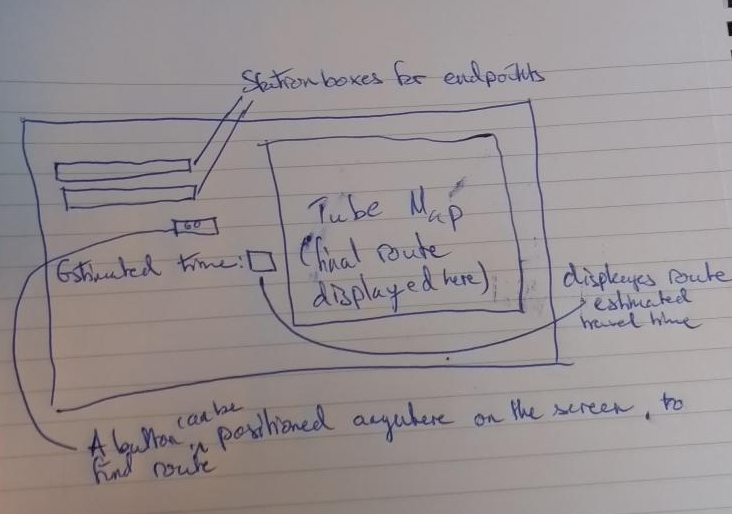 Station boxes for endpoints
GO
Estimated time:
Tube Map
(final route
displayed here)
displayes route
estimated
travel time
A button can be positioned anywhere on the screen, to
find route